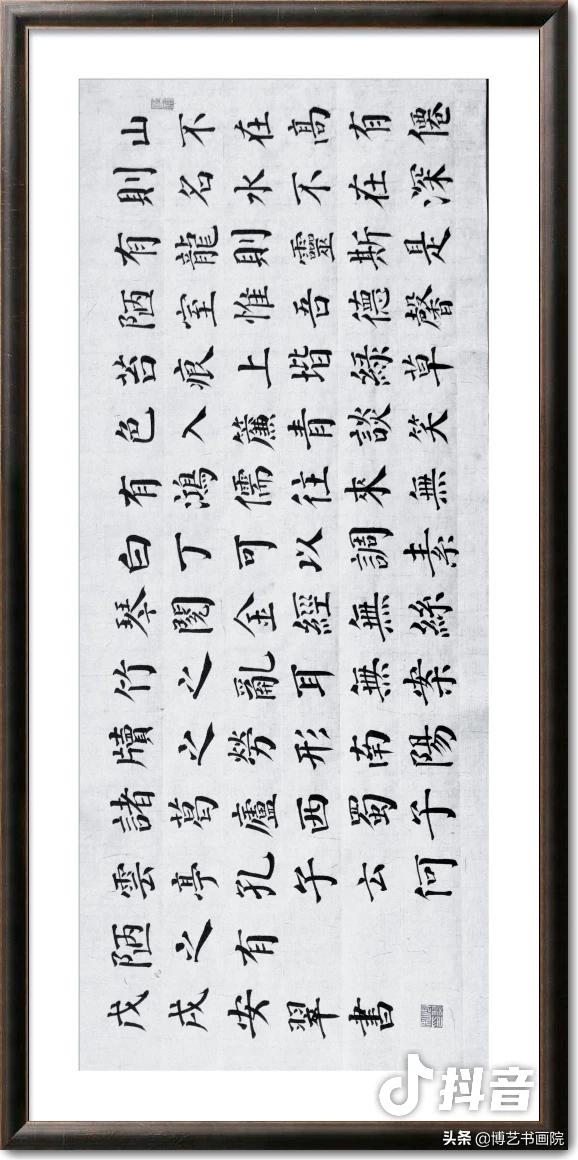 山不在高有僊
則名水不在深
有龍則靈斯是
陋室惟吾德馨
苔痕上堦綠草
色入簾青談笑
有鴻儒往來無
白丁可以調素
琴閱金經無絲
竹之亂耳無案
牘之勞形南陽
諸葛廬西蜀子
雲亭孔子云何
陋之有
戊戌安翠書
抖音
头条 @博艺书画院